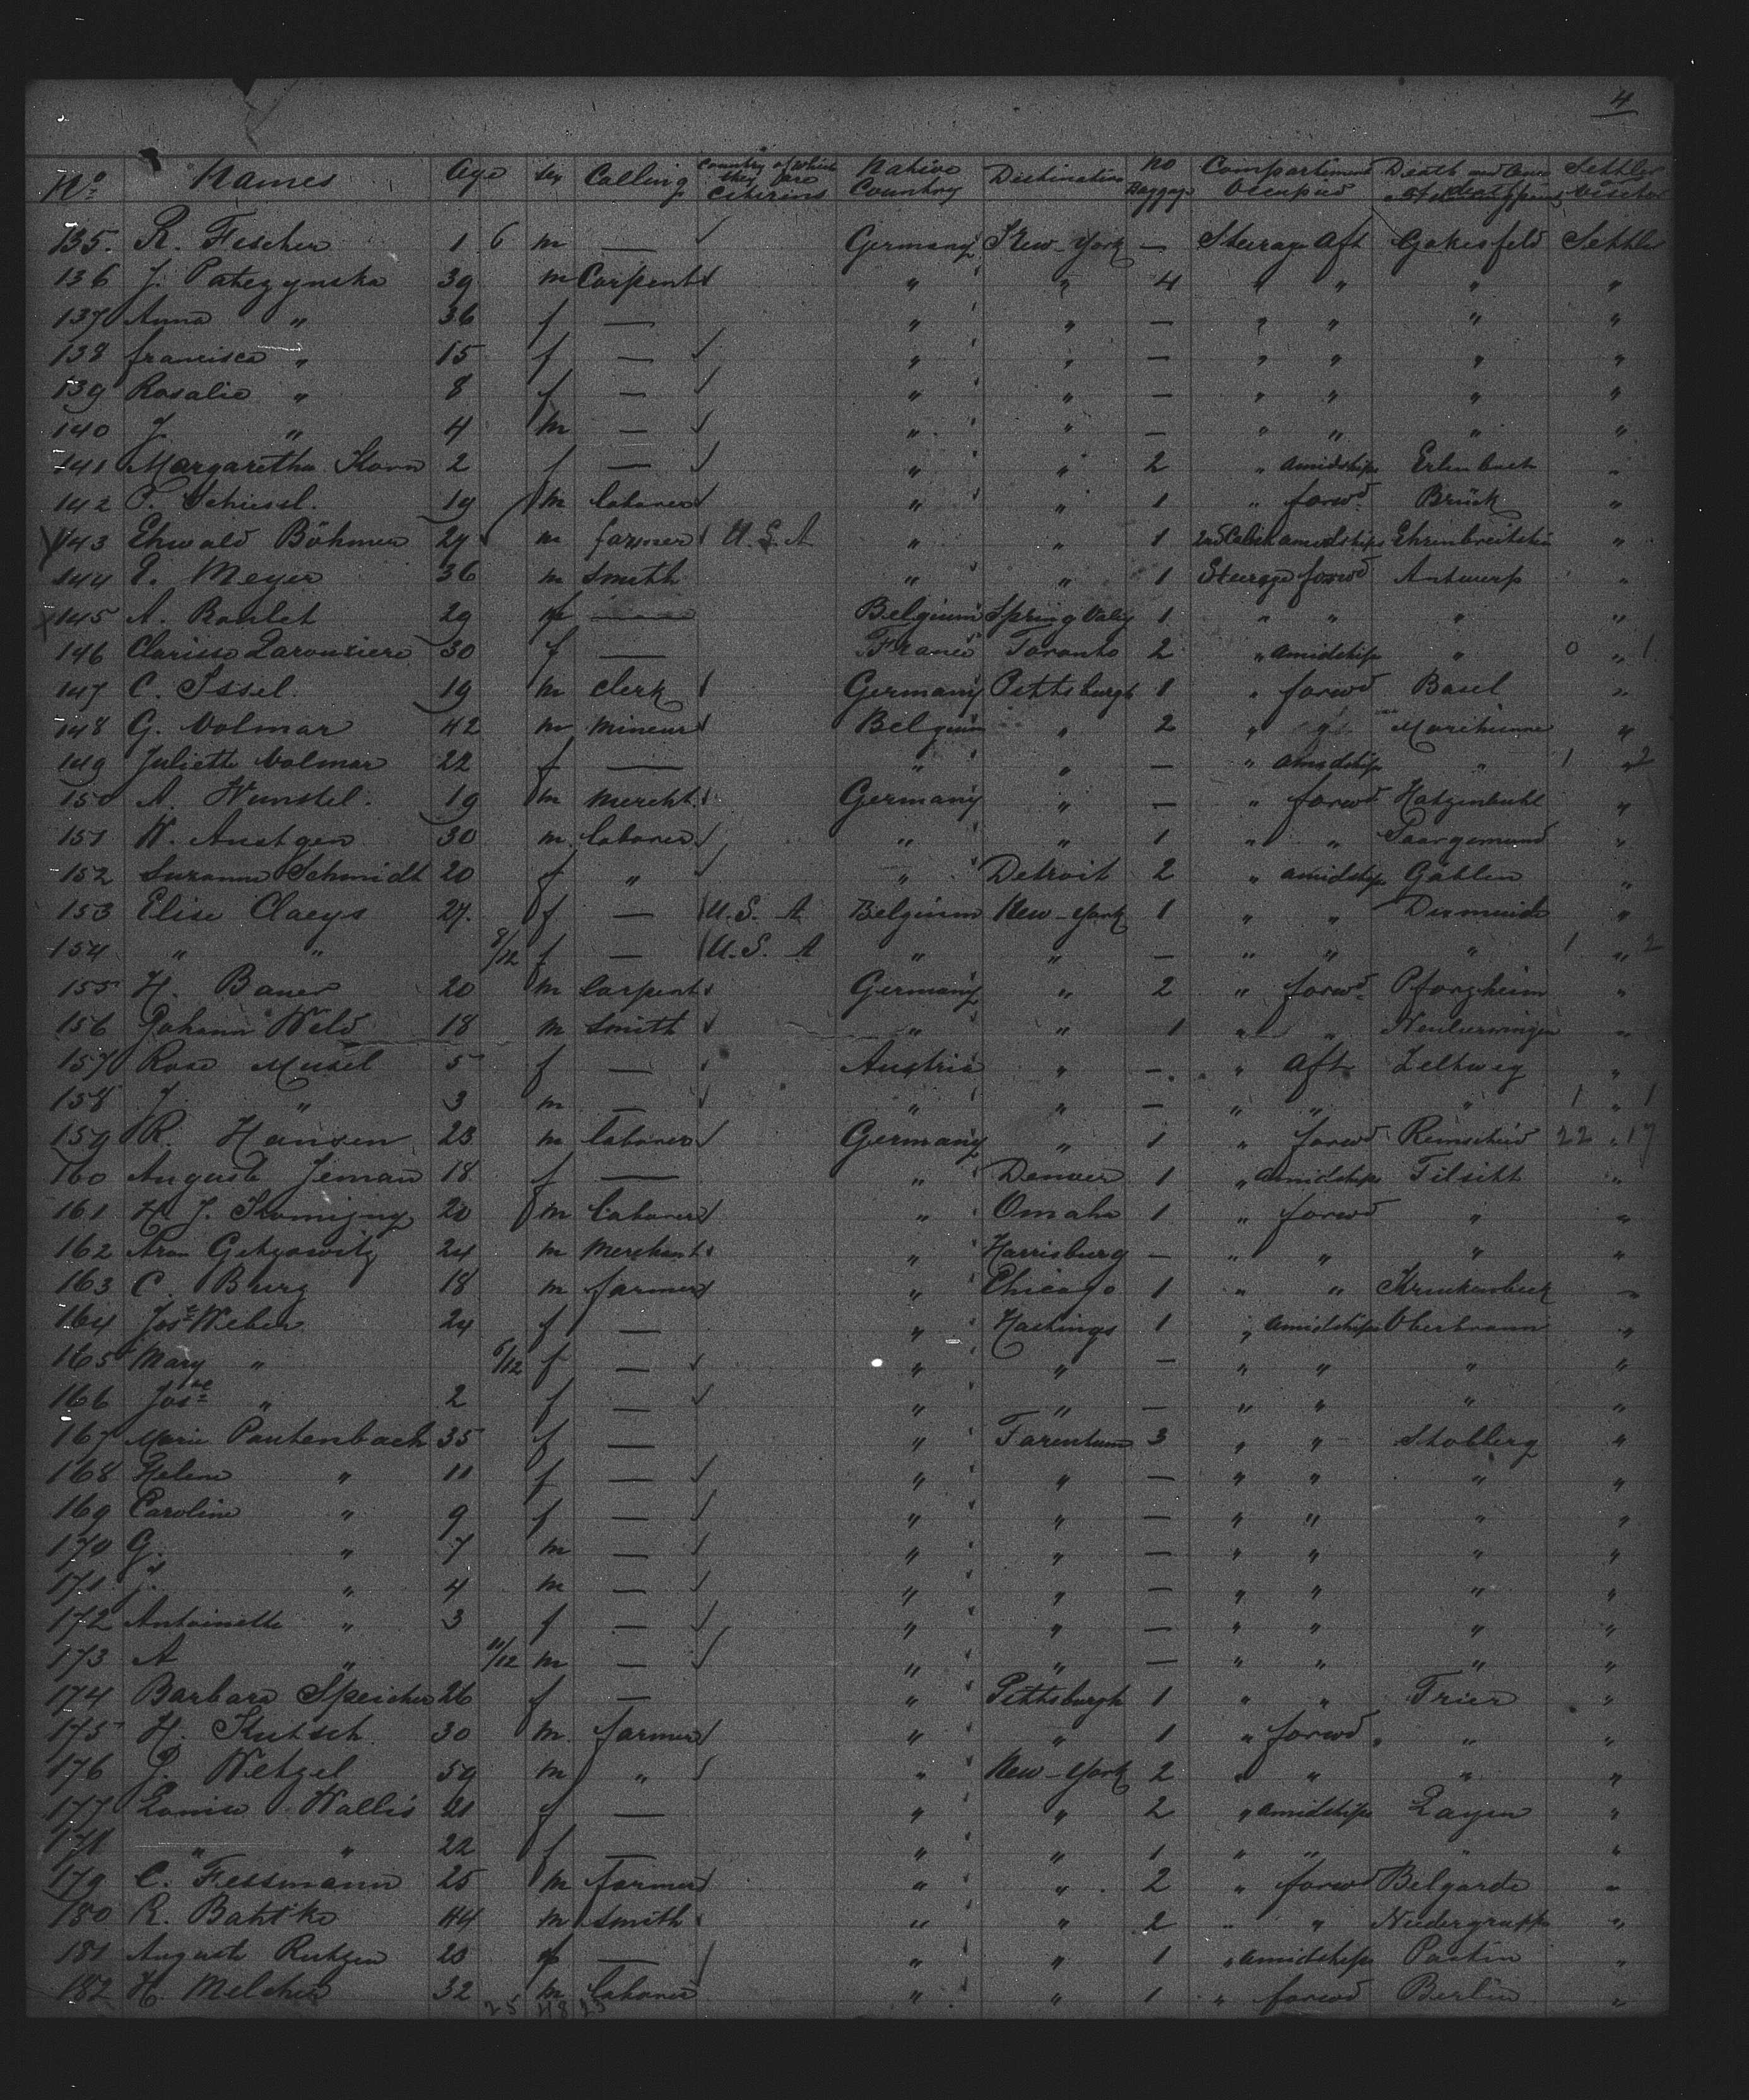 4
No Names Age Sex Calling Country of which they are Citizens Native Country Destination No Baggage Compartment Occupied Death and Settler Visitor
135. R. Fischer 1 6 m — Germany New-York — Steerage Aft Gakesfeld Settler
136 J. Patezynska 39 m Carpent " " 4 " " " "
137 Anna " 36 f — " " — " " " "
138 francisca " 15 f — " " — " " " "
139 Rosalie " 8 f — " " — " " " "
140 J. " 4 m — " " — " " " "
141 Margaretha Korn 2 f — " " 2 " amidships Erlenbach "
142 P. Schiessl. 19 m laborer " " 1 " forwd. Brück "
143 Ehwald Böhmer 29 m farmer U.S.A " " 1 2nd Cabin amidships Ehrenbreitstein "
144 P. Meyer 36 m Smith " " 1 Steerage forwd Antwerp "
145 A. Roulet 29 f — Belgium Spring Valey 1 " " " "
146 Clarisse Larouziere 30 f — France Toronto 2 " amidship " 0 " 1
147 C. Issel. 19 m clerk Germany Pittsburgh 1 " forwd Basel "
148 G. Volmar 42 m mineur Belgium " 2 " " "
149 Juliette Volmar 22 f — " " — " amidship " 1 " 2
150 A. Wunstel. 19 m mercht. Germany " — " forwd Hatzenbuhl "
151 N. Anstgen 30 m. laborer " " 1 " " Saargemund "
152 Suzanne Schmidt 20 f " " Detroit 2 " amidship Gahlen "
153 Elise Claeys 27. f — U.S. A Belgium New-York 1 " " Dixmuide "
154 " " 8/12 f — U.S. A " " — " " " 1 " 2
155 H. Bauer 20 m Carpent Germany " 2 " forwd. Pforzheim "
156 Johann Weld 18 m Smith " " 1 " " "
157 Rosa Musel 5 f — Austria " — " Aft Zeltweg "
158 J. " 3 m — " " — " " " 1 " 1
159 R. Hansen 23 m laborer Germany " 1 " forwd Remscheid 22 " 17
160 Auguste Jeman 18 f — " Denver 1 " Amidships Tilsitt "
161 H. J. Komigny 20 m laborer " Omaha 1 " forwd " "
162 Aron Getzowitz 24 m Merchant " Harrisburg — " " " "
163 C. Burg 18 m farmer " Chicago 1 " " "
164 Jose Weber 24 f — " Hastings 1 " Amidships Oberbronn "
165 Mary " 6/12 f — " " — " " " "
166 Josne " 2 f — " " — " " " "
167 Marie Pautenbach 35 f — " Tarentum 3 " " Stolberg "
168 Helene " 11 f — " " — " " " "
169 Caroline " 9 f — " " — " " " "
170 G. " 7 m — " " — " " " "
171 J. " 4 m — " " — " " " "
172 Antoinette " 3 f — " " — " " " "
173 A " 11/12 m — " " — " " " "
174 Barbara Speicher 26 f — " Pittsburgh 1 " " Trier "
175 H. Kutsch. 30 m. farmer " " 1 " forwd " "
176 P. Wetzel 59 m " " New-York 2 " " " "
177 Louise Wallis 21 f — " " 2 " amidships Layen "
178 " " 22 f — " " 1 " " " "
179 C. Fessmann 25 m farmer " " 2 " forwd Belgarde "
180 R. Bahtke 44 m Smith " " 2 " " "
181 Auguste Rutzen 20 f — " " 1 " amidships "
182 H. Melcher 32 m laborer " " 1 " forwd Berlin "
25 48 23